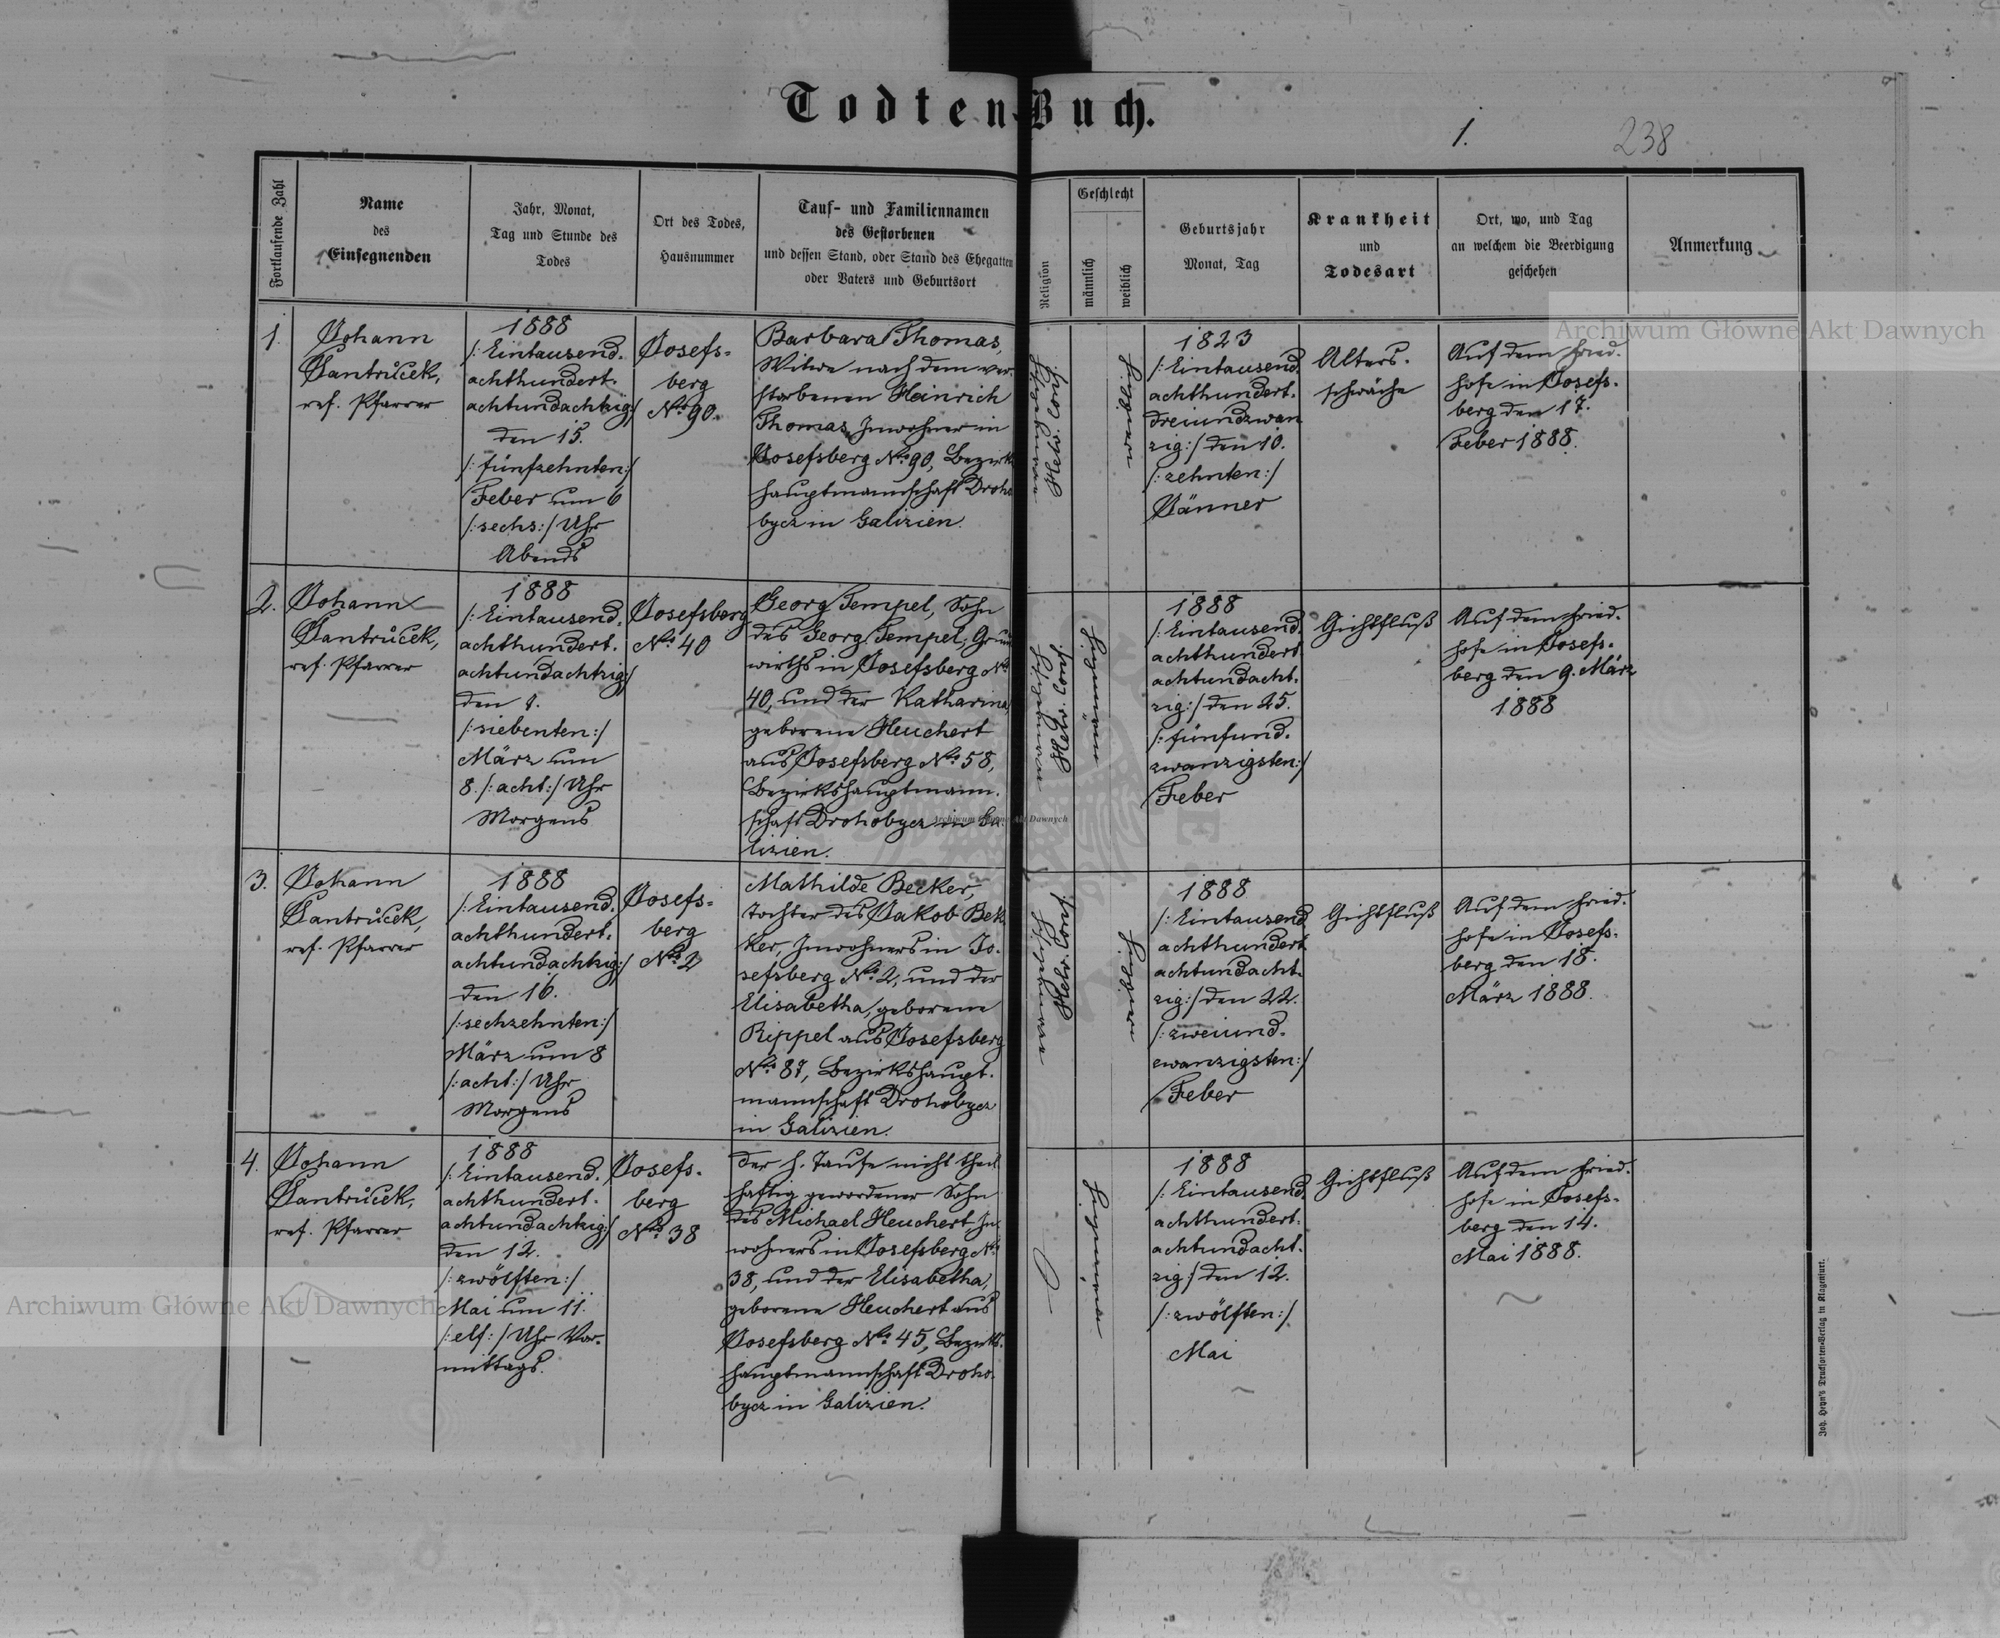 Todten-Buch.
1.
238
Fortlaufende Zahl
Name
des
Einsegnenden
Jahr, Monat,
Tag und Stunde des
Todes
Ort des Todes,
Hausnummer
Tauf- und Familiennamen
des Gestorbenen
und dessen Stand, oder Stand des Ehegatten
oder Vaters und Geburtsort
Religion
Geschlecht
männlich
weiblich
Geburtsjahr
Monat, Tag
Krankheit
und
Todesart
Ort, wo, und Tag
an welchem die Beerdigung
geschehen
Anmerkung
1.
Johann
Jantrůcek,
ref. Pfarrer
1888
/: Eintausend-
achthundert-
achtundachtzig:/
den 15.
/: fünfzehnten:/
Feber um 6
/: sechs:/ Uhr
Abends
Josefs-
berg
No. 90.
Barbara Thomas,
Witwe nach dem ver-
storbenen Heinrich
Thomas, Inwohner in
Josefsberg No. 90, Bezirks
hauptmannschaft Droho
bycz in Galizien.
Helv. Conf.
1823
/: Eintausend
achthundert-
dreiundzwan
zig:/ den 10.
/: zehnten:/
Jänner
Alters-
schwäche
Auf dem Fried-
hofe in Josefs-
berg den 17.
Feber 1888.
2.
Johann
Jantrůcek,
ref. Pfarrer
1888
/: Eintausend-
achthundert-
achtundachtzig:/
den 7.
/: siebenten:/
März um
8. /: acht:/ Uhr
Morgens
Josefsberg
No. 40
Georg Tempel, Sohn
des Georg Tempel, Grund
wirths in Josefsberg No.
40, und der Katharina,
geborene Heuchert
aus Josefsberg No. 58,
Bezirkshauptmann-
schaft Drohobycz in Ga-
lizien.
Helv. Conf.
1888
/: Eintausend
achthundert
achtundacht-
zig:/ den 25.
/: fünfund-
zwanzigsten:/
Feber
Gichtfluß
Auf dem Fried-
hofe in Josefs-
berg den 9. März
1888
3.
Johann
Jantrůcek,
ref. Pfarrer
1888
/: Eintausend-
achthundert-
achtundachtzig:/
den 16.
/: sechzehnten:/
März um 8
/: acht:/ Uhr
Morgens
Josefs-
berg
No. 2
Mathilde Becker,
Tochter des Jakob Bek
ker, Inwohners in Jo-
sefsberg No. 2, und der
Elisabetha, geborene
Rippel aus Josefsberg
No. 87, Bezirkshaupt-
mannschaft Drohobycz
in Galizien.
Helv. Conf.
1888
/: Eintausend
achthundert
achtundacht-
zig:/ den 22.
/: zweiund-
zwanzigsten:/
Feber
Gichtfluß
Auf dem Fried-
hofe in Josefs-
berg den 18.
März 1888.
4.
Johann
Jantrůcek,
ref. Pfarrer
1888
/: Eintausend-
achthundert-
achtundachtzig:/
den 12.
/: zwölften:/
Mai um 11.
/: elf:/ Uhr Vor-
mittags.
Josefs-
berg
No. 38
Der h. Taufe nicht theil
haftig gewordener Sohn
des Michael Heuchert, In-
wohners in Josefsberg No.
38, und der Elisabetha,
geborene Heuchert aus
Josefsberg No. 45, Bezirks-
hauptmannschaft Droho-
bycz in Galizien.
1888
/: Eintausend
achthundert-
achtundacht-
zig:/ den 12.
/: zwölften:/
Mai
Gichtfluß
Auf dem Fried-
hofe in Josefs-
berg den 14.
Mai 1888.
Joh. Heyn's Drucksorten-Verlag in Klagenfurt.
Archiwum Główne Akt Dawnych
Archiwum Główne Akt Dawnych
Archiwum Główne Akt Dawnych